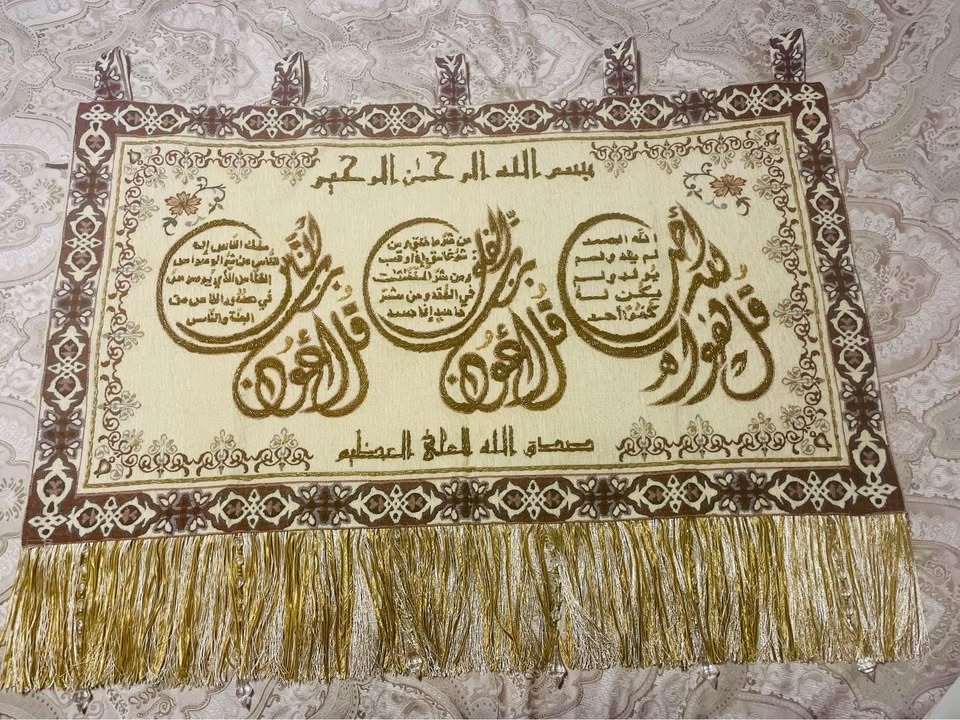 بسم الله الرحمن الرحيم
قل هو الله أحد
الله الصمد
لم يلد ولم
يولد ولم
يكن له
كفوا أحد
قل أعوذ
برب الفلق
من شر ما خلق ومن
شر غاسق إذا وقب
ومن شر النفاثات
في العقد ومن شر
حاسد إذا حسد
قل أعوذ
برب الناس
ملك الناس إله
الناس من شر الوسواس
الخناس الذي يوسوس
في صدور الناس من
الجنة والناس
صدق الله العلي العظيم